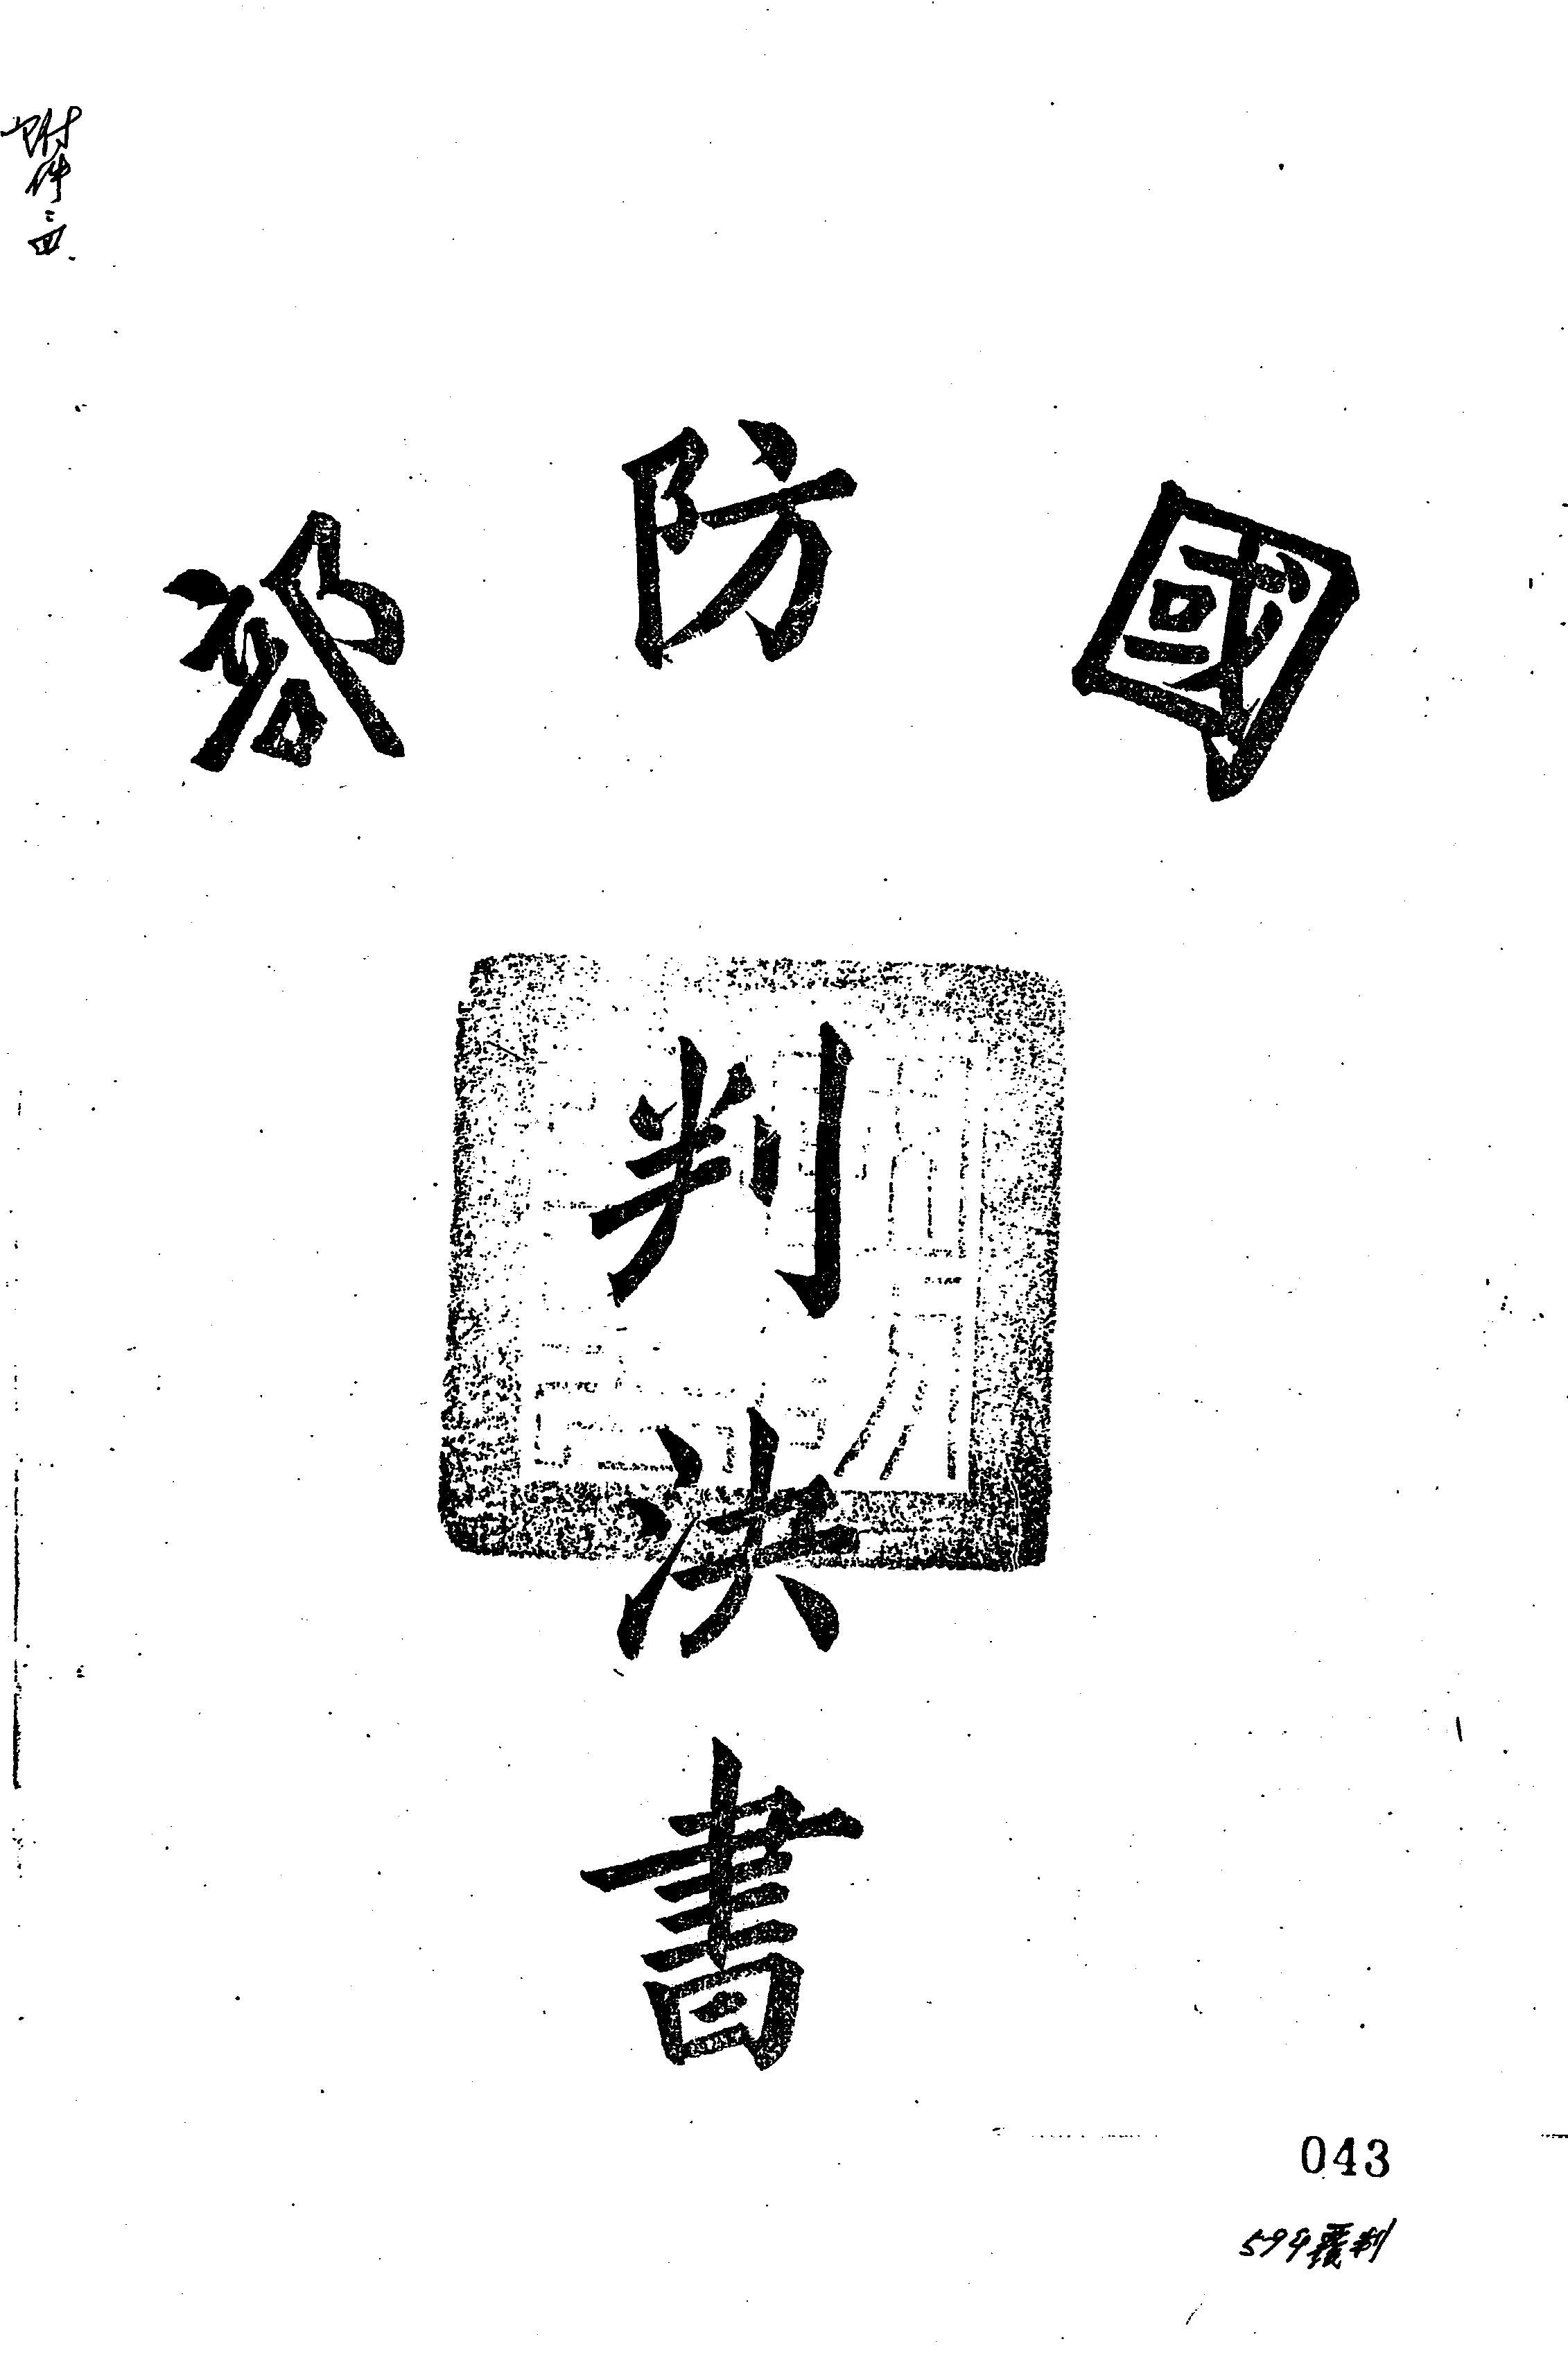 附件:四
國防部
判決書
043
59年覆判